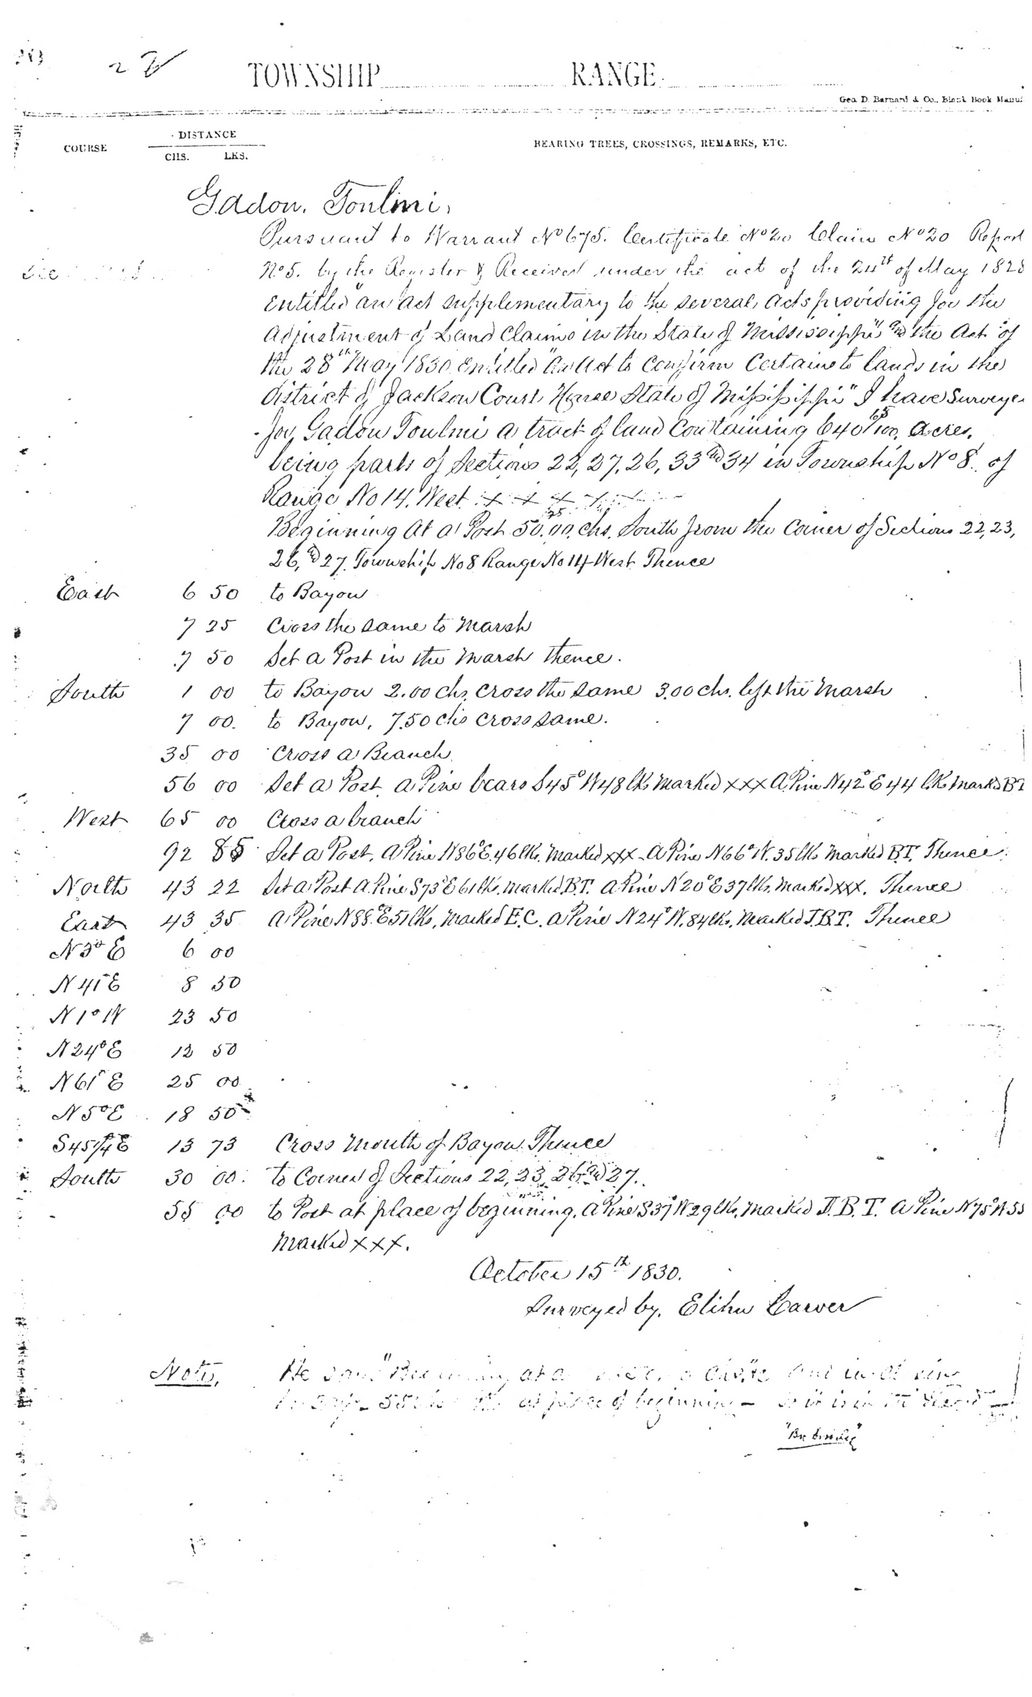 28
TOWNSHIP RANGE
Geo D. Barnard & Co., Blank Book Manuf
COURSE DISTANCE BEARING TREES, CROSSINGS, REMARKS, ETC.
CHS. LKS.
Gadon. Toulmi,
Pursuant to Warrant No 675. Certificate No 20 Claim No 20 Report
No 5. by the Register & Received under the act of the 24th of May 1828
Entitled "an act supplementary to the several acts providing for the
adjustment of Land Claims in the State of Mississippi" and the Act of
the 28th May 1830 entitled "an Act to confirm Certain to lands in the
district of Jackson Court House State of Mississippi" I have Surveye
for Gadon Toulmi a tract of land Containing 640 65/100 acres.
being parts of Sections 22, 27, 26, 33 and 34 in Township No 8. of
Range No 14. West x x x x x
Beginning at a Post 50.00 chs. South from the corner of Sections 22, 23,
26, and 27. Township No 8 Range No 14 West Thence
East 6 50 to Bayou
7 25 Cross the same to Marsh
7 50 Set a Post in the Marsh thence.
South 1 00 to Bayou 2.00 chs. cross the same 3.00 chs. left the Marsh
7 00. to Bayou, 7.50 chs cross same.
35 00 Cross a Branch
56 00 Set a Post a Pine bears S45°W 48 lks marked xxx A Pine N42°E 44 lks marked BT
West 65 00 Cross a branch
92 85 Set a Post, a Pine N86°E, 46 lks, marked xxx - a Pine N66°W. 35 lks marked B.T. Thence
North 43 22 Set a Post a Pine S73°E 61 lks, marked B.T. a Pine N20°E 37 lks, marked xxx. Thence
East 43 35 a Pine N88°E 51 lks, marked E.C. a Pine N24°W. 84 lks, marked I.B.T. Thence
N3°E 6 00
N41°E 8 50
N1°W 23 50
N24°E 12 50
N61°E 25 00
N5°E 18 50
S45 1/4°E 13 73 Cross Mouth of Bayou Thence
South 30 00. to Corner of Sections 22, 23, 26 and 27.
55 00 to Post at place of beginning. a Pine S37°W 29 lks, marked I.B.T. a Pine N75°W 55
marked xxx.
October 15th 1830.
Surveyed by, Elihu Carver
Note, He
at place of beginning